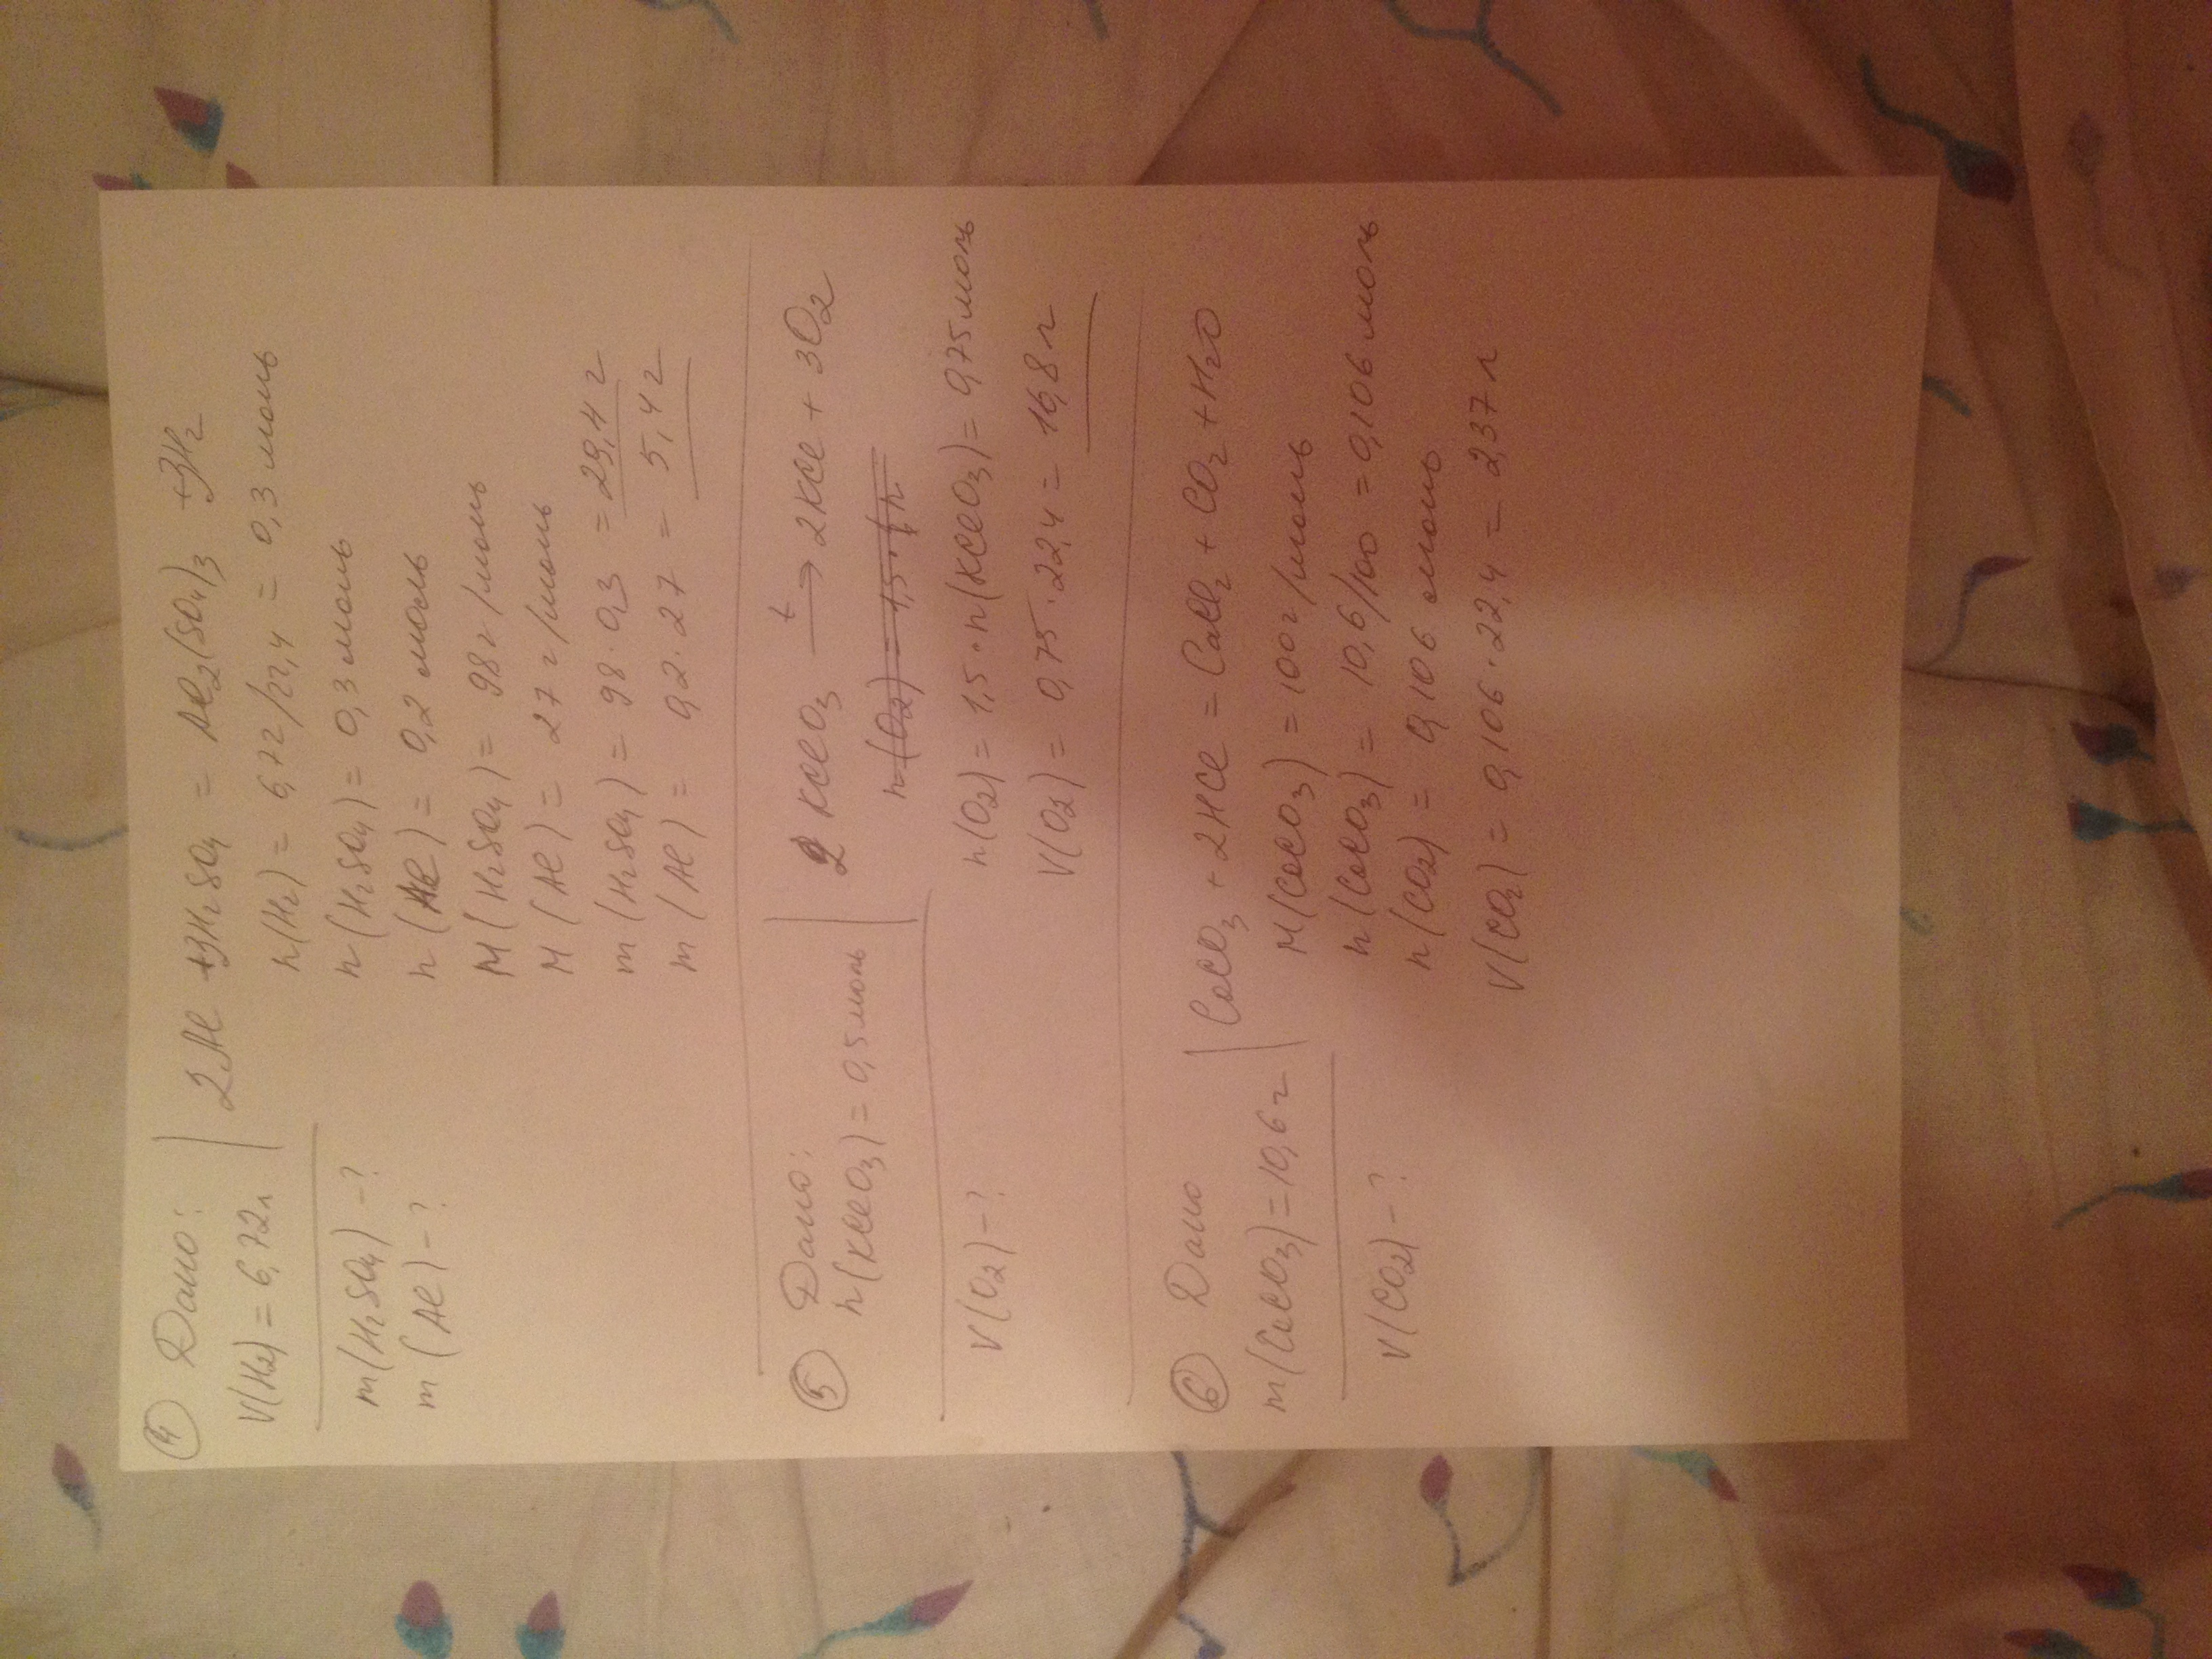 ④ Дано:
V(H₂) = 6,72 л
m(H₂SO₄) - ?
m(Al) - ?
2Al + 3H₂SO₄ = Al₂(SO₄)₃ + 3H₂
n(H₂) = 6,72/22,4 = 0,3 моль
n(H₂SO₄) = 0,3 моль
n(Al) = 0,2 моль
M(H₂SO₄) = 98 г/моль
M(Al) = 27 г/моль
m(H₂SO₄) = 98 · 0,3 = 29,4 г
m(Al) = 0,2 · 27 = 5,4 г
⑤ Дано:
n(KClO₃) = 0,5 моль
V(O₂) - ?
2 KClO₃ t→ 2KCl + 3O₂
n(O₂) = 1,5 ·
n(O₂) = 1,5 · n(KClO₃) = 0,75 моль
V(O₂) = 0,75 · 22,4 = 16,8 л
⑥ Дано
m(CaCO₃) = 10,6 г
V(CO₂) - ?
CaCO₃ + 2HCl = CaCl₂ + CO₂ + H₂O
M(CaCO₃) = 100 г/моль
n(CaCO₃) = 10,6/100 = 0,106 моль
n(CO₂) = 0,106 моль
V(CO₂) = 0,106 · 22,4 = 2,37 л